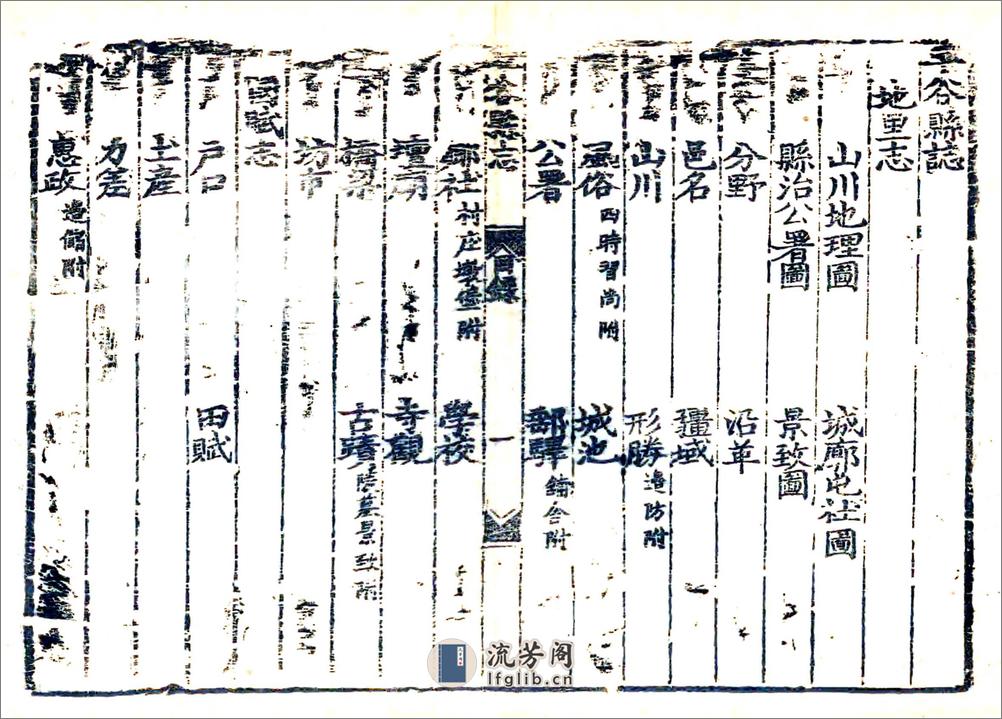 平谷縣誌
地里志
山川地理圖　城廓屯社圖
縣治公署圖　景致圖
分野　沿革
邑名　疆域
山川　形勝　邊防附
風俗　四時習尚附　城池
公署　郵驛　鋪舍附
谷縣志　目錄　一
鄉社　村庄墩堡附　學校
壇廟　寺觀
橋梁　古蹟　陵墓景致附
坊市
國賦志
戶口　田賦
土產
力差
惠政　邊儲附
流芳阁
lfglib.cn